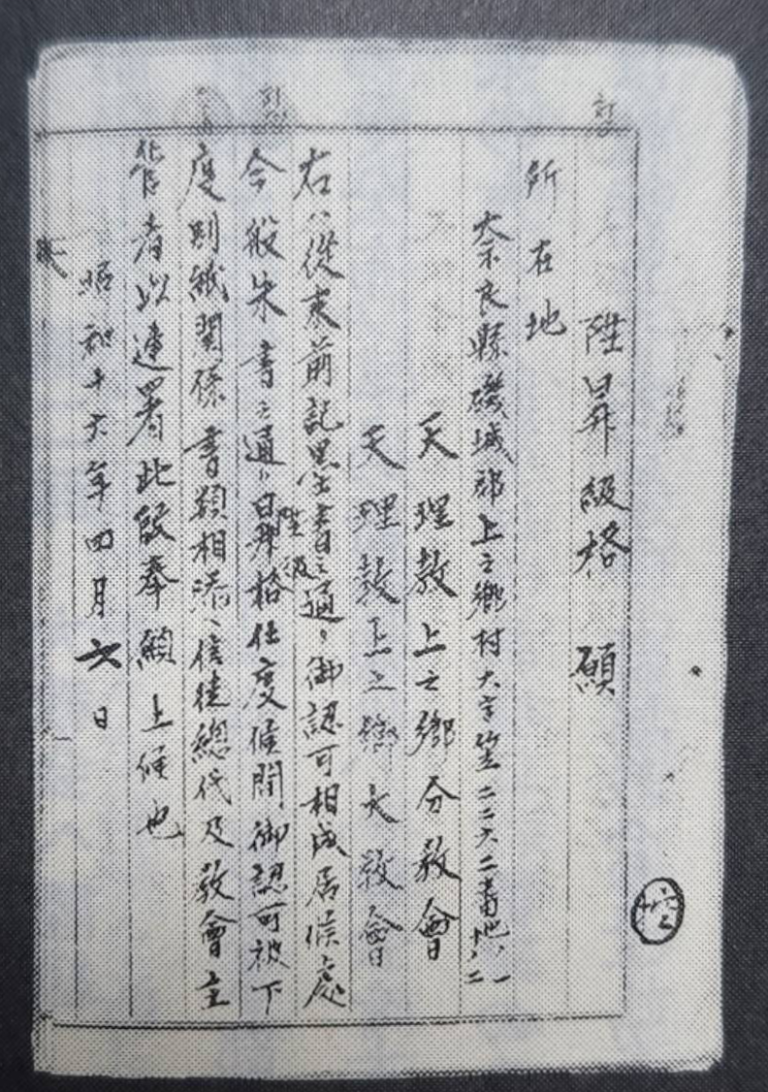 陞昇級格 願
所在地
奈良縣磯城郡上之郷村大字笠二二六二番地ノ一
十ノ二
天理教上之郷分教會
天理教上之郷大教會
右ハ從来前記墨書之通リ御認可相成居候處
今般朱書之通リ昇格仕度候間御認可被下
陞級
度別紙関係書類相添、信徒總代及教會主
管者以連署此段奉願上候也
昭和十六年四月六日
控